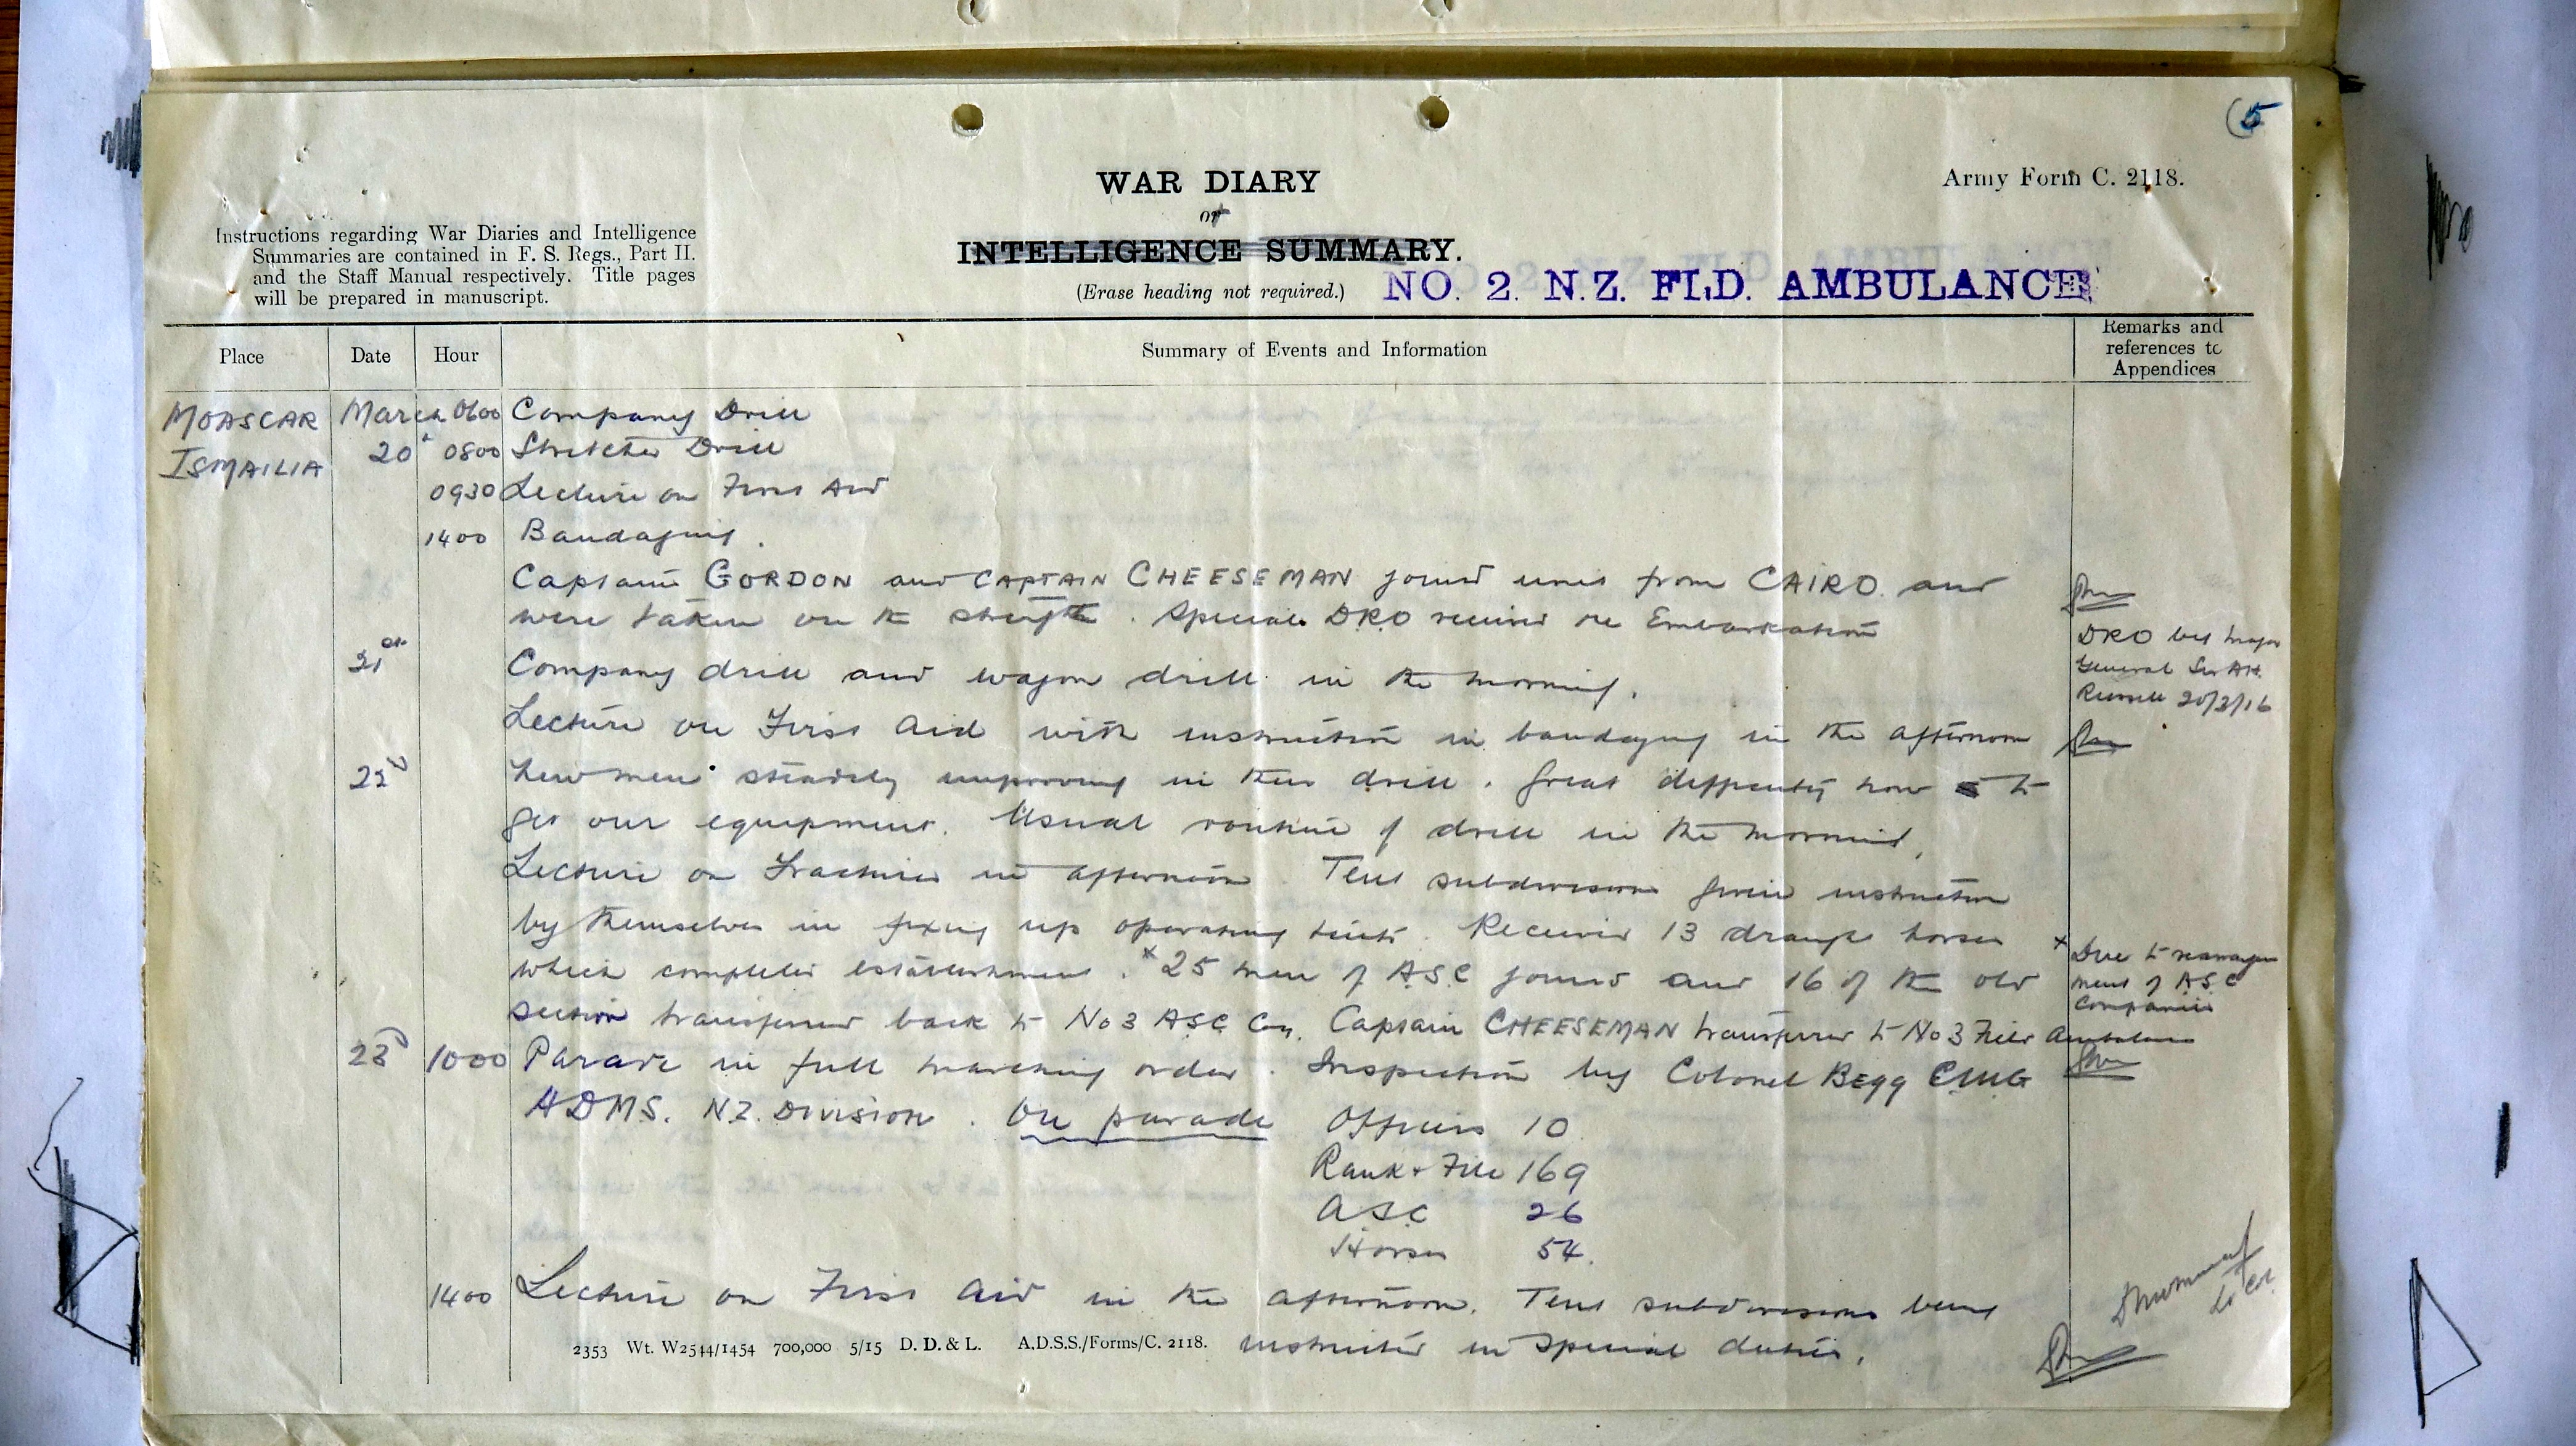 (5
WAR DIARY
or
INTELLIGENCE SUMMARY.
(Erase heading not required.)
Army Form C. 2118.
Instructions regarding War Diaries and Intelligence
Summaries are contained in F. S. Regs., Part II.
and the Staff Manual respectively. Title pages
will be prepared in manuscript.
NO. 2. N.Z. FLD. AMBULANCE
Place Date Hour Summary of Events and Information Remarks and references to Appendices
MOASCAR March 0600 Company Drill
ISMAILIA 20th 0800 Stretcher Drill
0930 Lecture on First Aid
1400 Bandaging.
Captain GORDON and CAPTAIN CHEESEMAN joined unit from CAIRO and
were taken on the strength. Special DRO received re Embarkation
DRO by Major
General Sir AH.
Russell 20/3/16
21st Company drill and wagon drill in the morning.
Lecture on First Aid with instruction in bandaging in the afternoon
22nd New men steadily improving in their drill. Great difficulty now to
get our equipment. Usual routine of drill in the morning.
Lecture on Fractures in afternoon Tent subdivisions given instruction
by themselves in fixing up operating tents. Received 13 draught horses
which completes establishment. x 25 men of A.S.C joined and 16 of the old
section transferred back to No 3 ASC Coy. Captain CHEESEMAN transferred to No 3 Field Ambulance
x Due to rearrange
ment of A.S.C
Companies
23rd 1000 Parade in full marching order. Inspection by Colonel BEGG CMG
ADMS. N.Z. DIVISION. On parade Officers 10
Rank + File 169
ASC 26
Horses 54.
1400 Lecture on First Aid in the afternoon. Tent subdivisions being
instructed in special duties.
Lt Col.
2353 Wt. W2544/1454 700,000 5/15 D. D. & L. A.D.S.S./Forms/C. 2118.